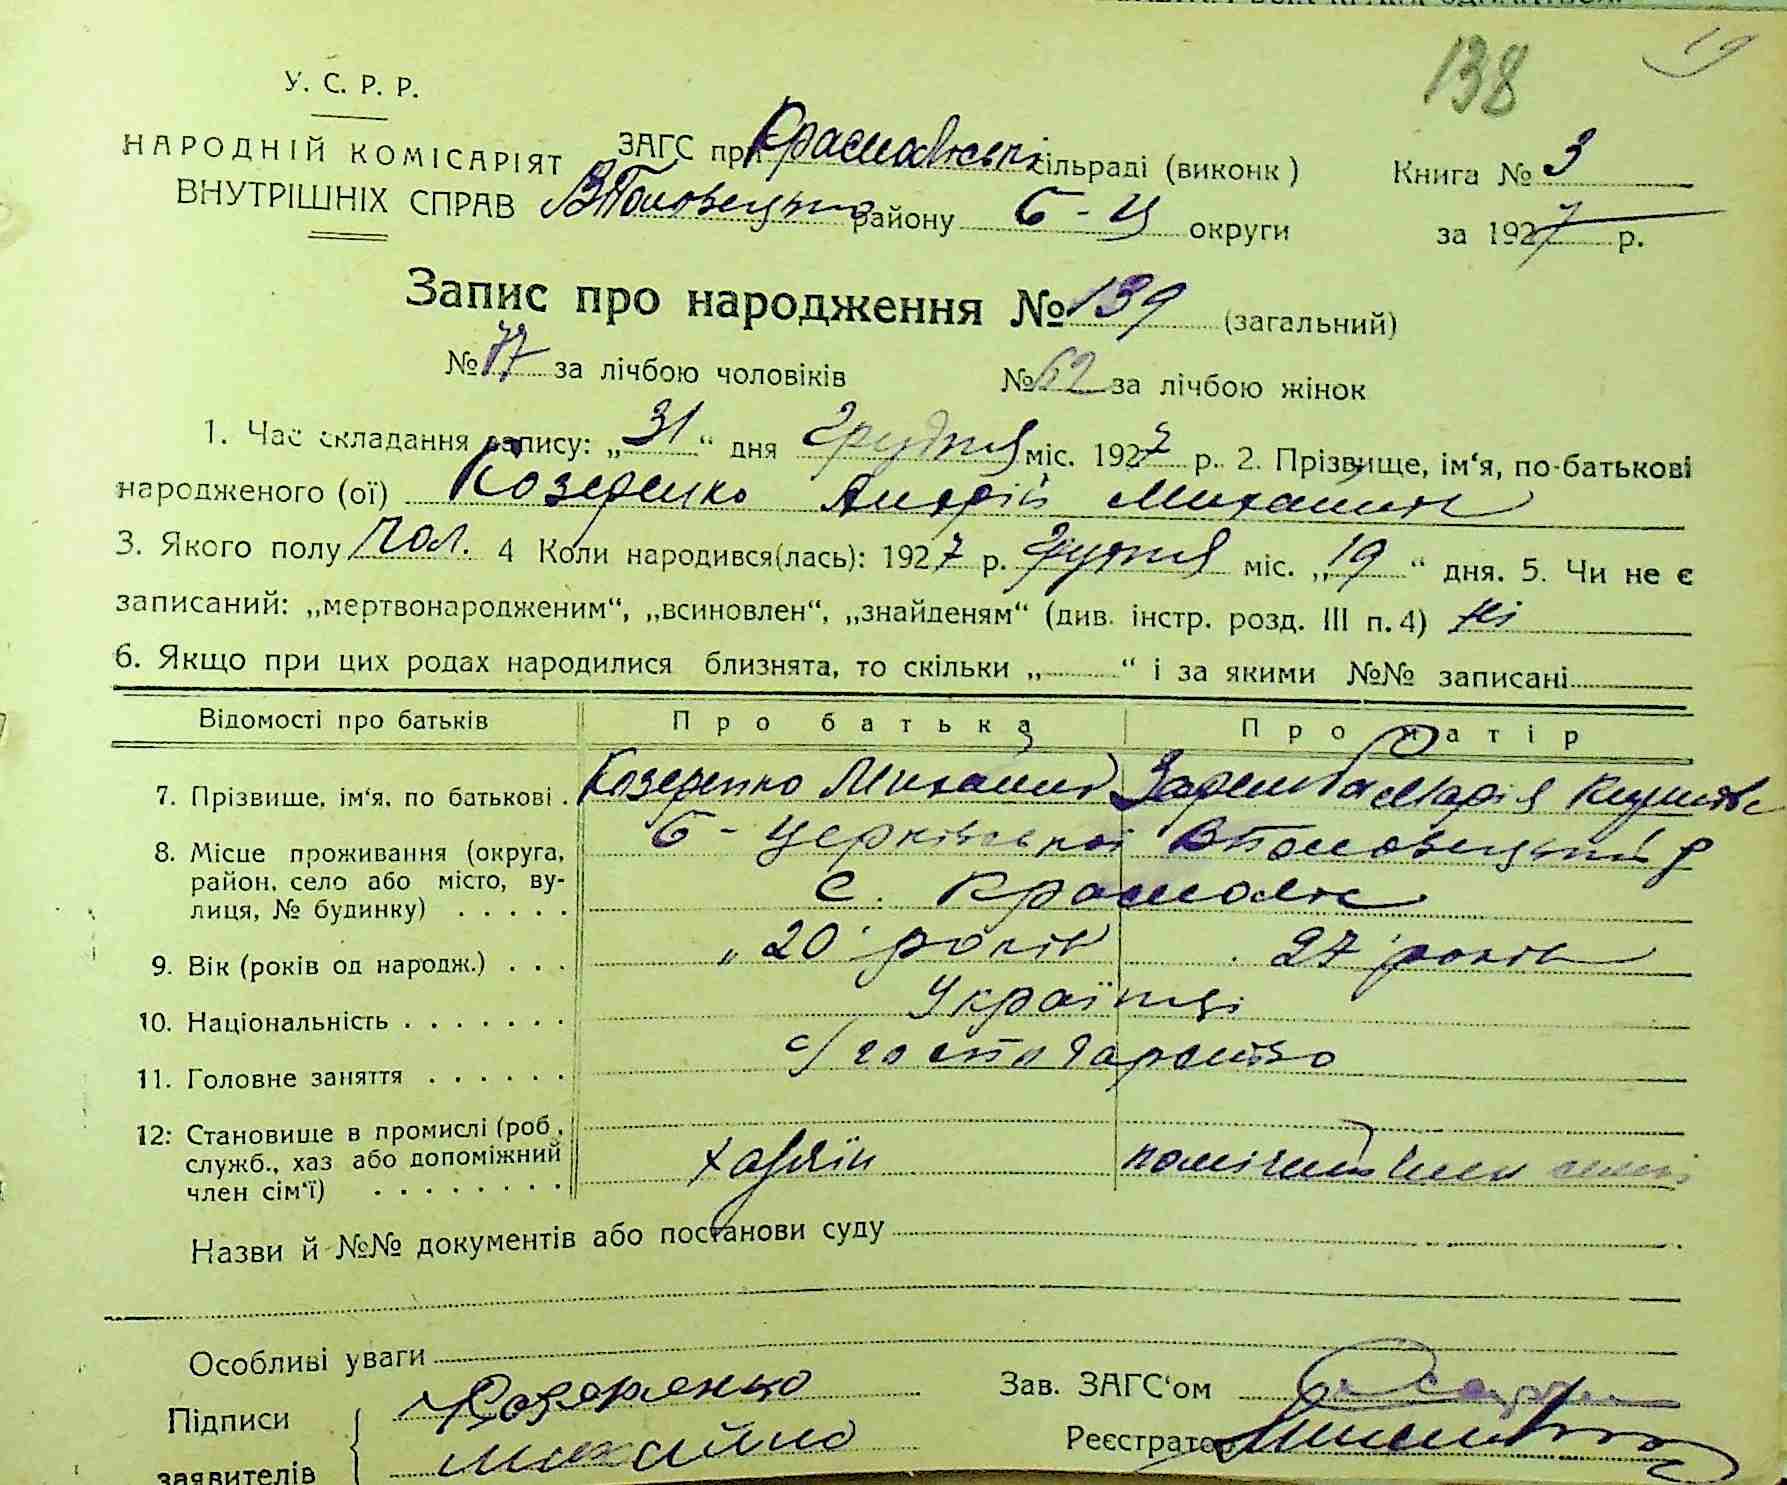 138 19
У. С. Р. Р.
НАРОДНІЙ КОМІСАРІЯТ
ВНУТРІШНІХ СПРАВ
ЗАГС при Краснолюській сільраді (виконк)
В Половецько району Б-Ц округи
Книга № 3
за 1927 р.
Запис про народження № 139 (загальний)
№ 77 за лічбою чоловіків № 62 за лічбою жінок
1. Час складання запису: „31“ дня Грудня міс. 1927 р. 2. Прізвище, ім‘я, по-батькові
народженого (ої) Козеренко Андрій Михайлів
3. Якого полу чол. 4 Коли народився(лась): 1927 р. Грудня міс. „19“ дня. 5. Чи не є
записаний: „мертвонародженим“, „всиновлен“, „знайденям“ (див. інстр. розд. III п. 4) ні
6. Якщо при цих родах народилися близнята, то скільки „ “ і за якими №№ записані
Відомості про батьків Про батька Про матір
7. Прізвище, ім‘я, по батькові . Козеренко Михайло Заремба Марія
8. Місце проживання (округа, Б-Церківської В Половецький р
район, село або місто, ву- с. Краснолюк
лиця, № будинку) . . . . .
9. Вік (років од народж.) . . . 20 років 27 років
10. Національність . . . . . . . Українці
11. Головне заняття . . . . . . с/господарство
12: Становище в промислі (роб.,
служб., хаз або допоміжний хазяїн помічний член сімї
член сім‘ї) . . . . . . . .
Назви й №№ документів або постанови суду
Особливі уваги
Підписи Козеренко Зав. ЗАГС‘ом
заявителів Михайло Реєстратор